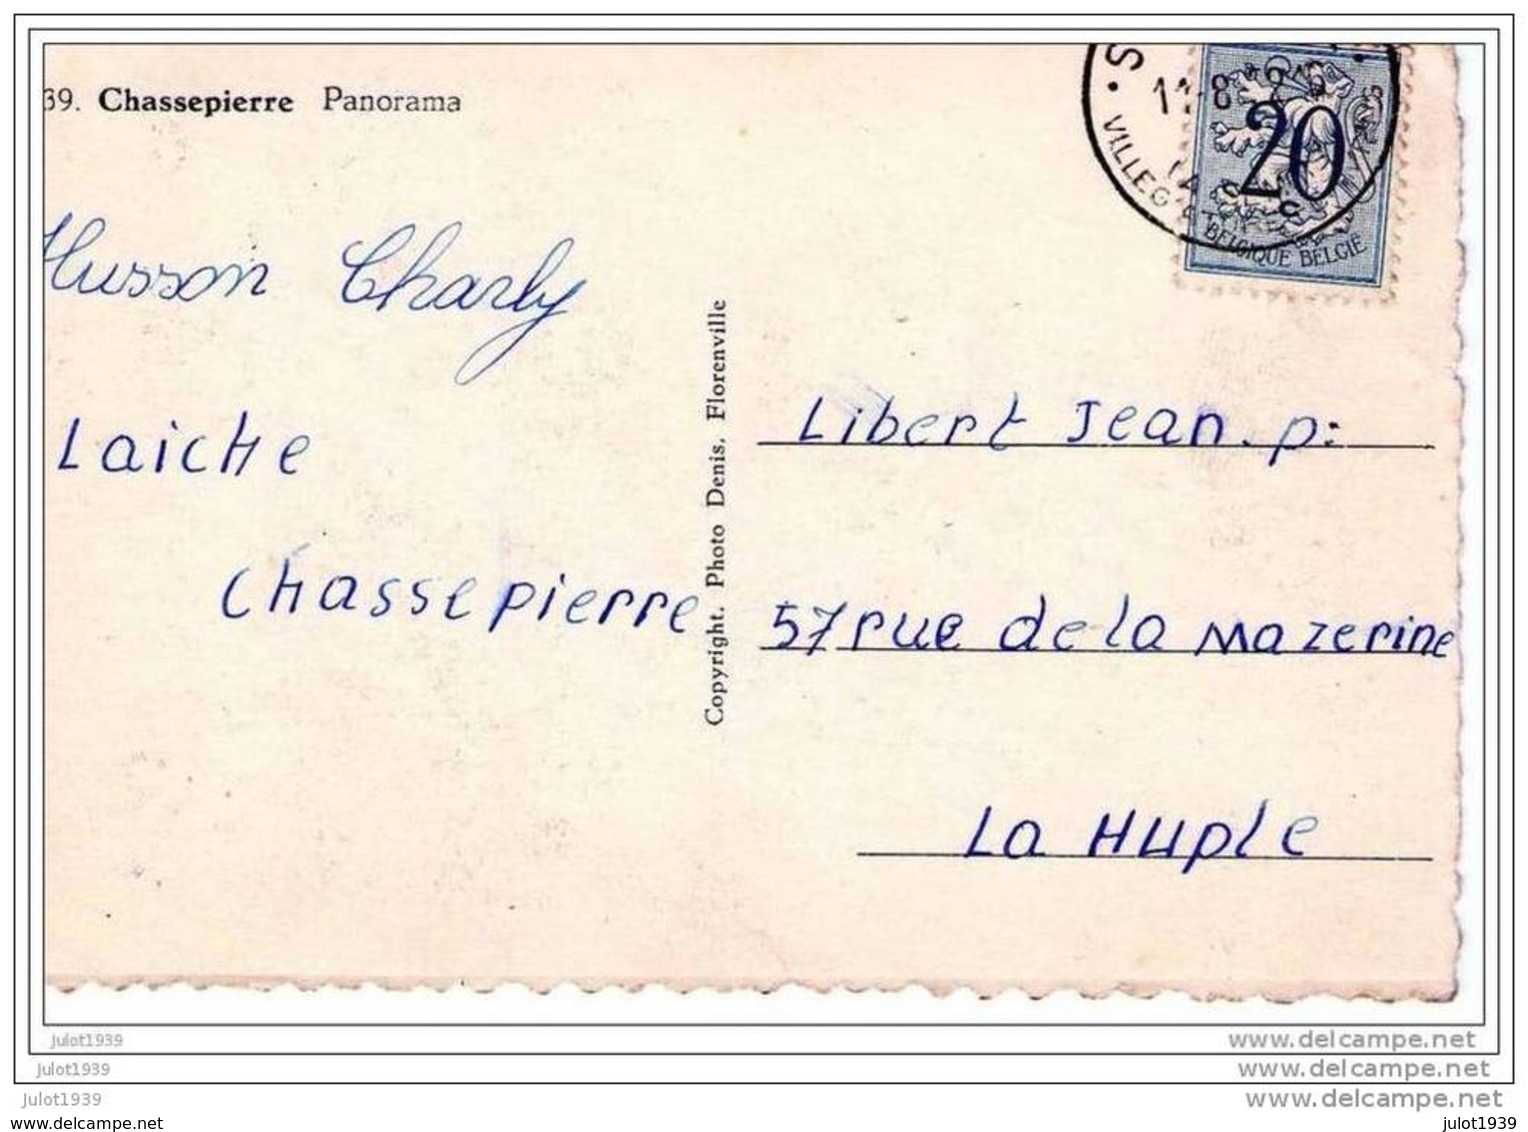 39. Chassepierre Panorama
S
VILLEG
20
BELGIQUE BELGIE
Husson Charly
Laiche
Chassepierre
Copyright. Photo Denis, Florenville
Libert Jean. p:
57 rue de la Mazerine
La Huple
julot1939
www.delcampe.net
julot1939
www.delcampe.net
julot1939
www.delcampe.net
www.delcampe.net
julot1939